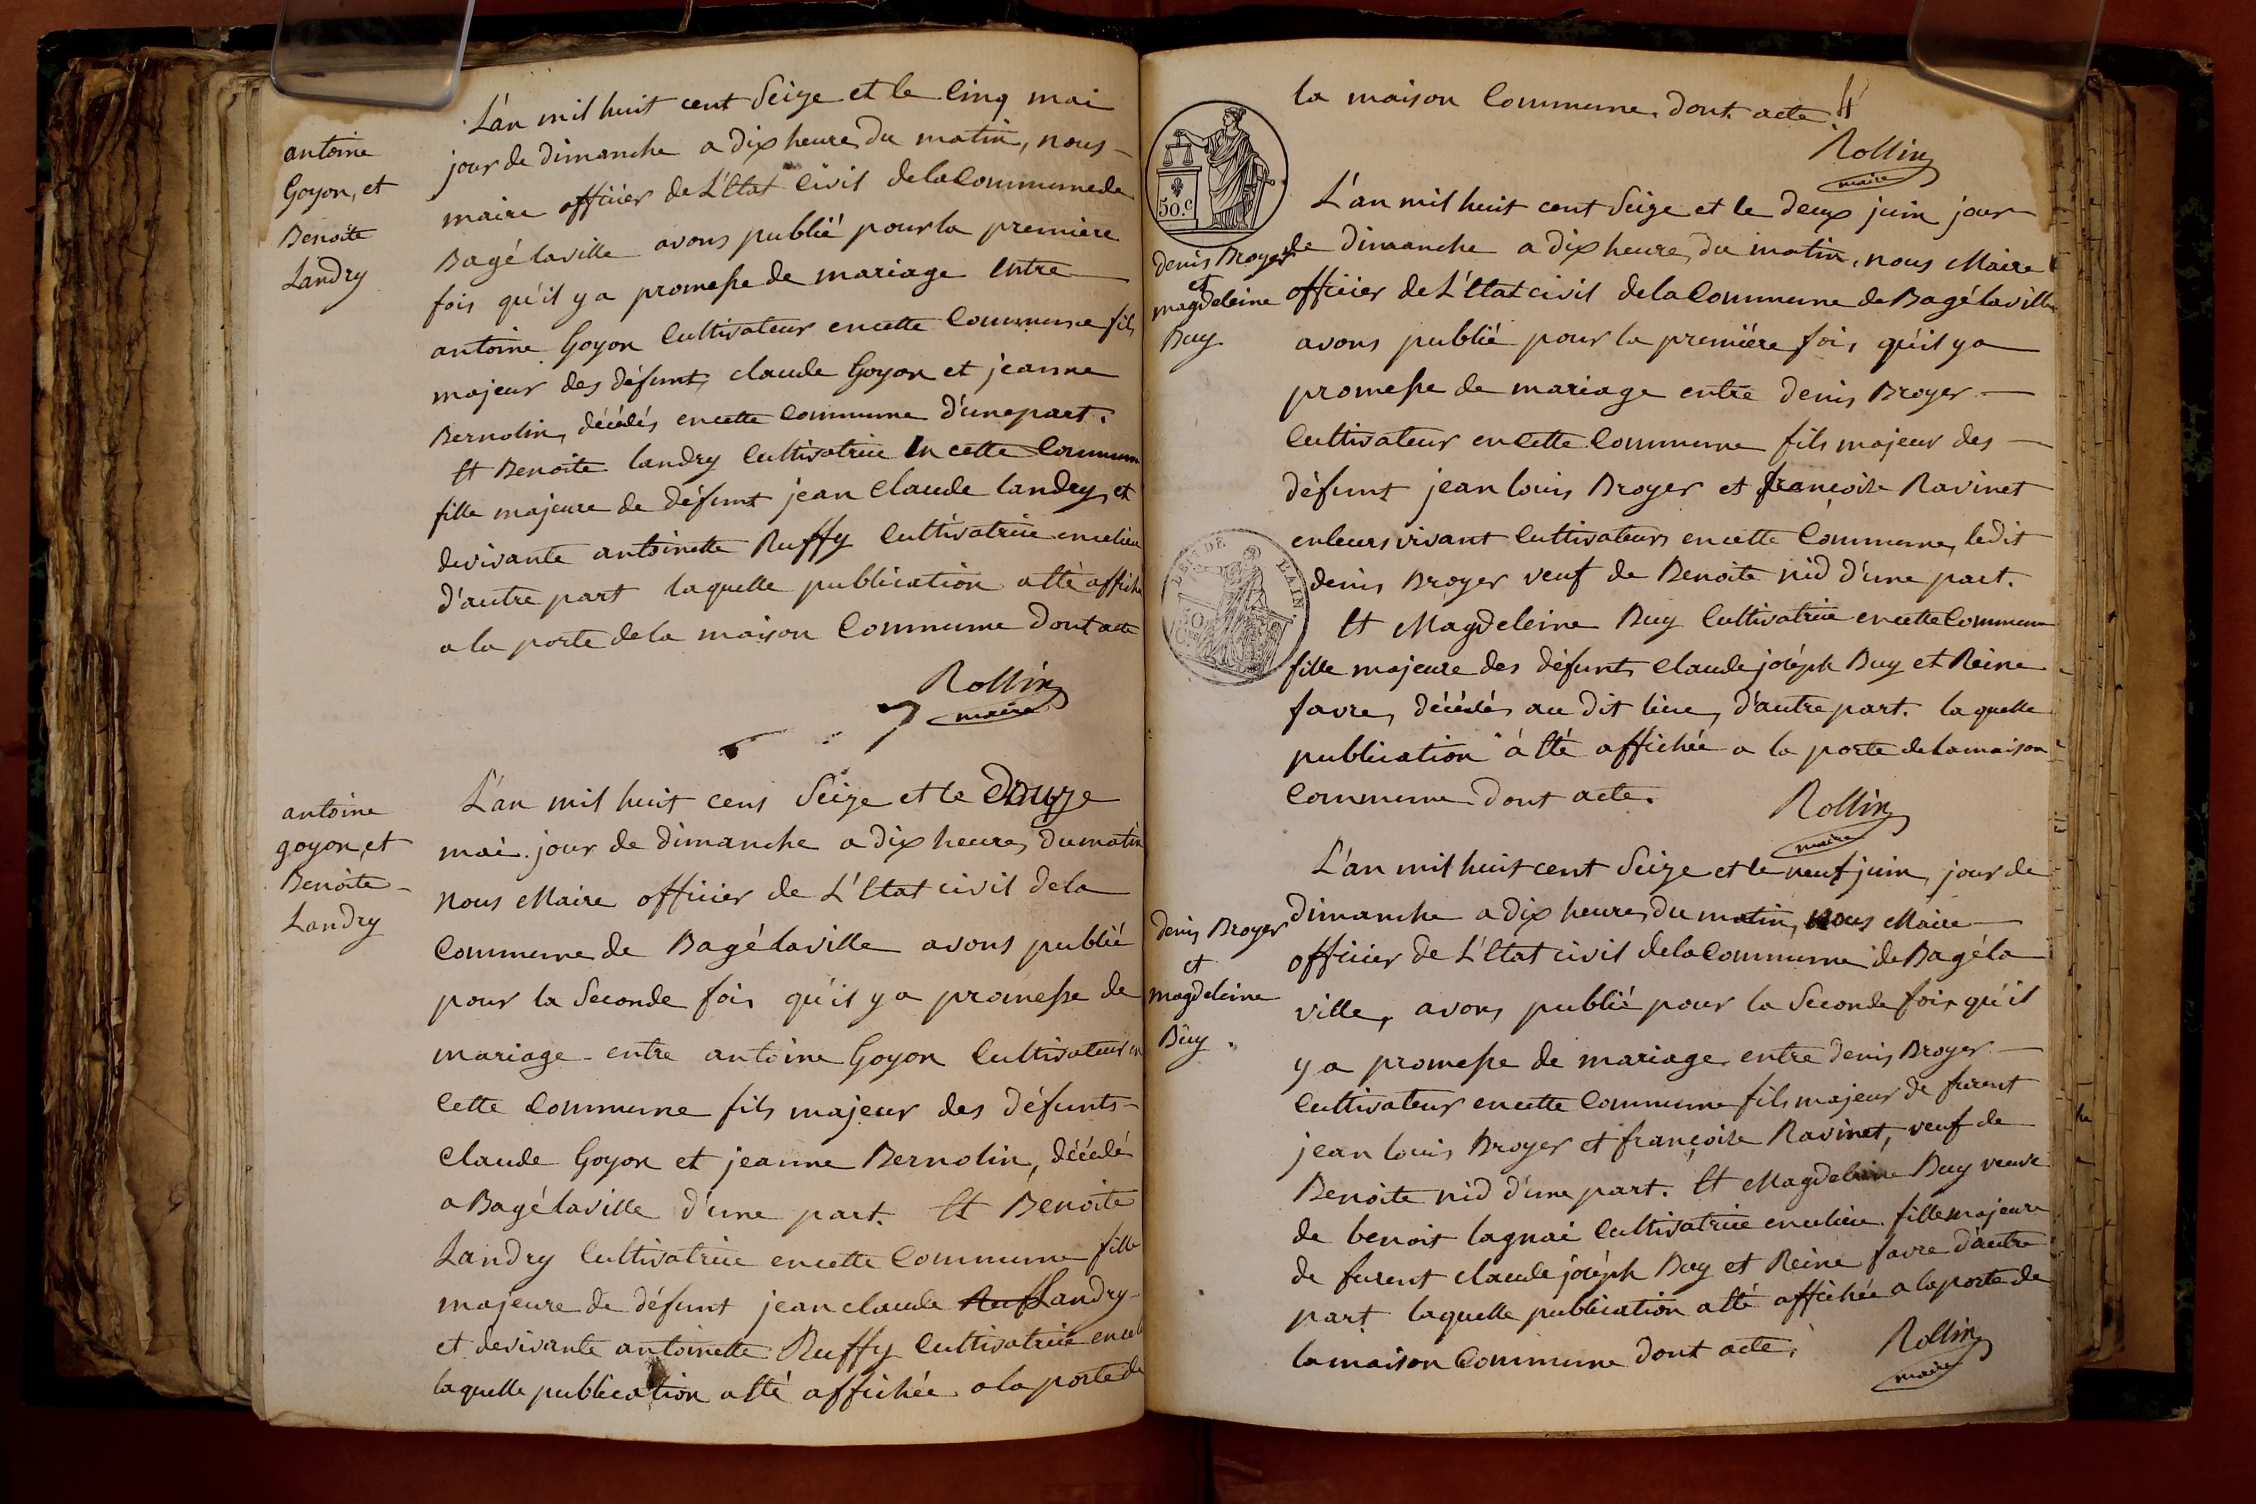 antoine
Goyon, et
Benoite
Landry
L'an mil huit cent Seize et le Cinq mai
jour de dimanche a dix heure du matin, nous
maire officier de L'Etat Civil de la Commune de
Bagé laville avons publié pour la première
fois qu'il y a promesse de mariage Entre
antoine Goyon Cultivateur en cette Commune fils
majeur des défunts claude Goyon et jeanne
Bernolin, décédés en cette Commune d'une part.
Et Benoite landry Cultivatrice En cette Commune
fille majeure de défunt jean Claude landry, et
de vivante antoinette Ruffy Cultivatrice en ce lieu
d'autre part laquelle publication a Eté affiché
a la porte de la maison Commune Dont acte
Rollin
maire
antoine
goyon, et
Benoite
Landry
L'an mil huit cens Seize et le Douze
mai jour de dimanche a dix heures, du matin
nous Maire officier de L'Etat civil de la
Commune de Bagé laville avons publié
pour la Seconde fois qu'il y a promesse de
mariage entre antoine Goyon Cultivateur en
Cette Commune fils majeur des défunts
Claude Goyon et jeanne Bernolin, décédés
a Bagé laville d'une part. Et Benoite
Landry Cultivatrice en cette Commune fille
majeure de défunt jean claude Ruff Landry
et de vivante antoinette Ruffy Cultivatrice en ce
laquelle publication a Eté affichée a la porte de
la maison Commune, dont acte.
Rollin
maire
50.c
denis Broyer
et
magdeleine
Buy
L'an mil huit cent Seize et le deux juin jour
de dimanche a dix heure, du matin, nous Maire
officier de L'Etat civil de la Commune de Bagé laville
avons publié pour la première fois qu'il y a
promesse de mariage entre denis Broyer
Cultivateur en cette Commune fils majeur des
défunt jean louis Broyer et françoise Ravinet
en leurs vivant Cultivateurs en cette Commune, ledit
denis Broyer veuf de Benoite nid d'une part.
Et Magdeleine Buy Cultivatrice en cette Commune
fille majeure des défunts Claude joséph Buy et Reine
favre, décédés au dit lieu, d'autre part. laquelle
publication a Eté affichée a la porte de la maison
Commune dont acte.
Rollin
maire
DE L'AIN
50
denis Broyer
et
magdeleine
Buy
L'an mil huit cent Seize et le neuf juin, jour de
dimanche a dix heures du matin, nous Maire
officier de L'Etat civil de la Commune de Bagé la
ville, avons publié pour la Seconde fois, qu'il
y a promesse de mariage entre denis Broyer
Cultivateur en cette Commune fils majeur de furent
jean louis Broyer et françoise Ravinet, veuf de
Benoite nid d'une part. Et Magdeleine Buy veuve
de benoit lagnai Cultivatrice en ce lieu fille majeure
de furent claude joséph Buy et Reine favre d'autre
part laquelle publication a Eté affichée a la porte de
la maison Commune dont acte.
Rollin
maire